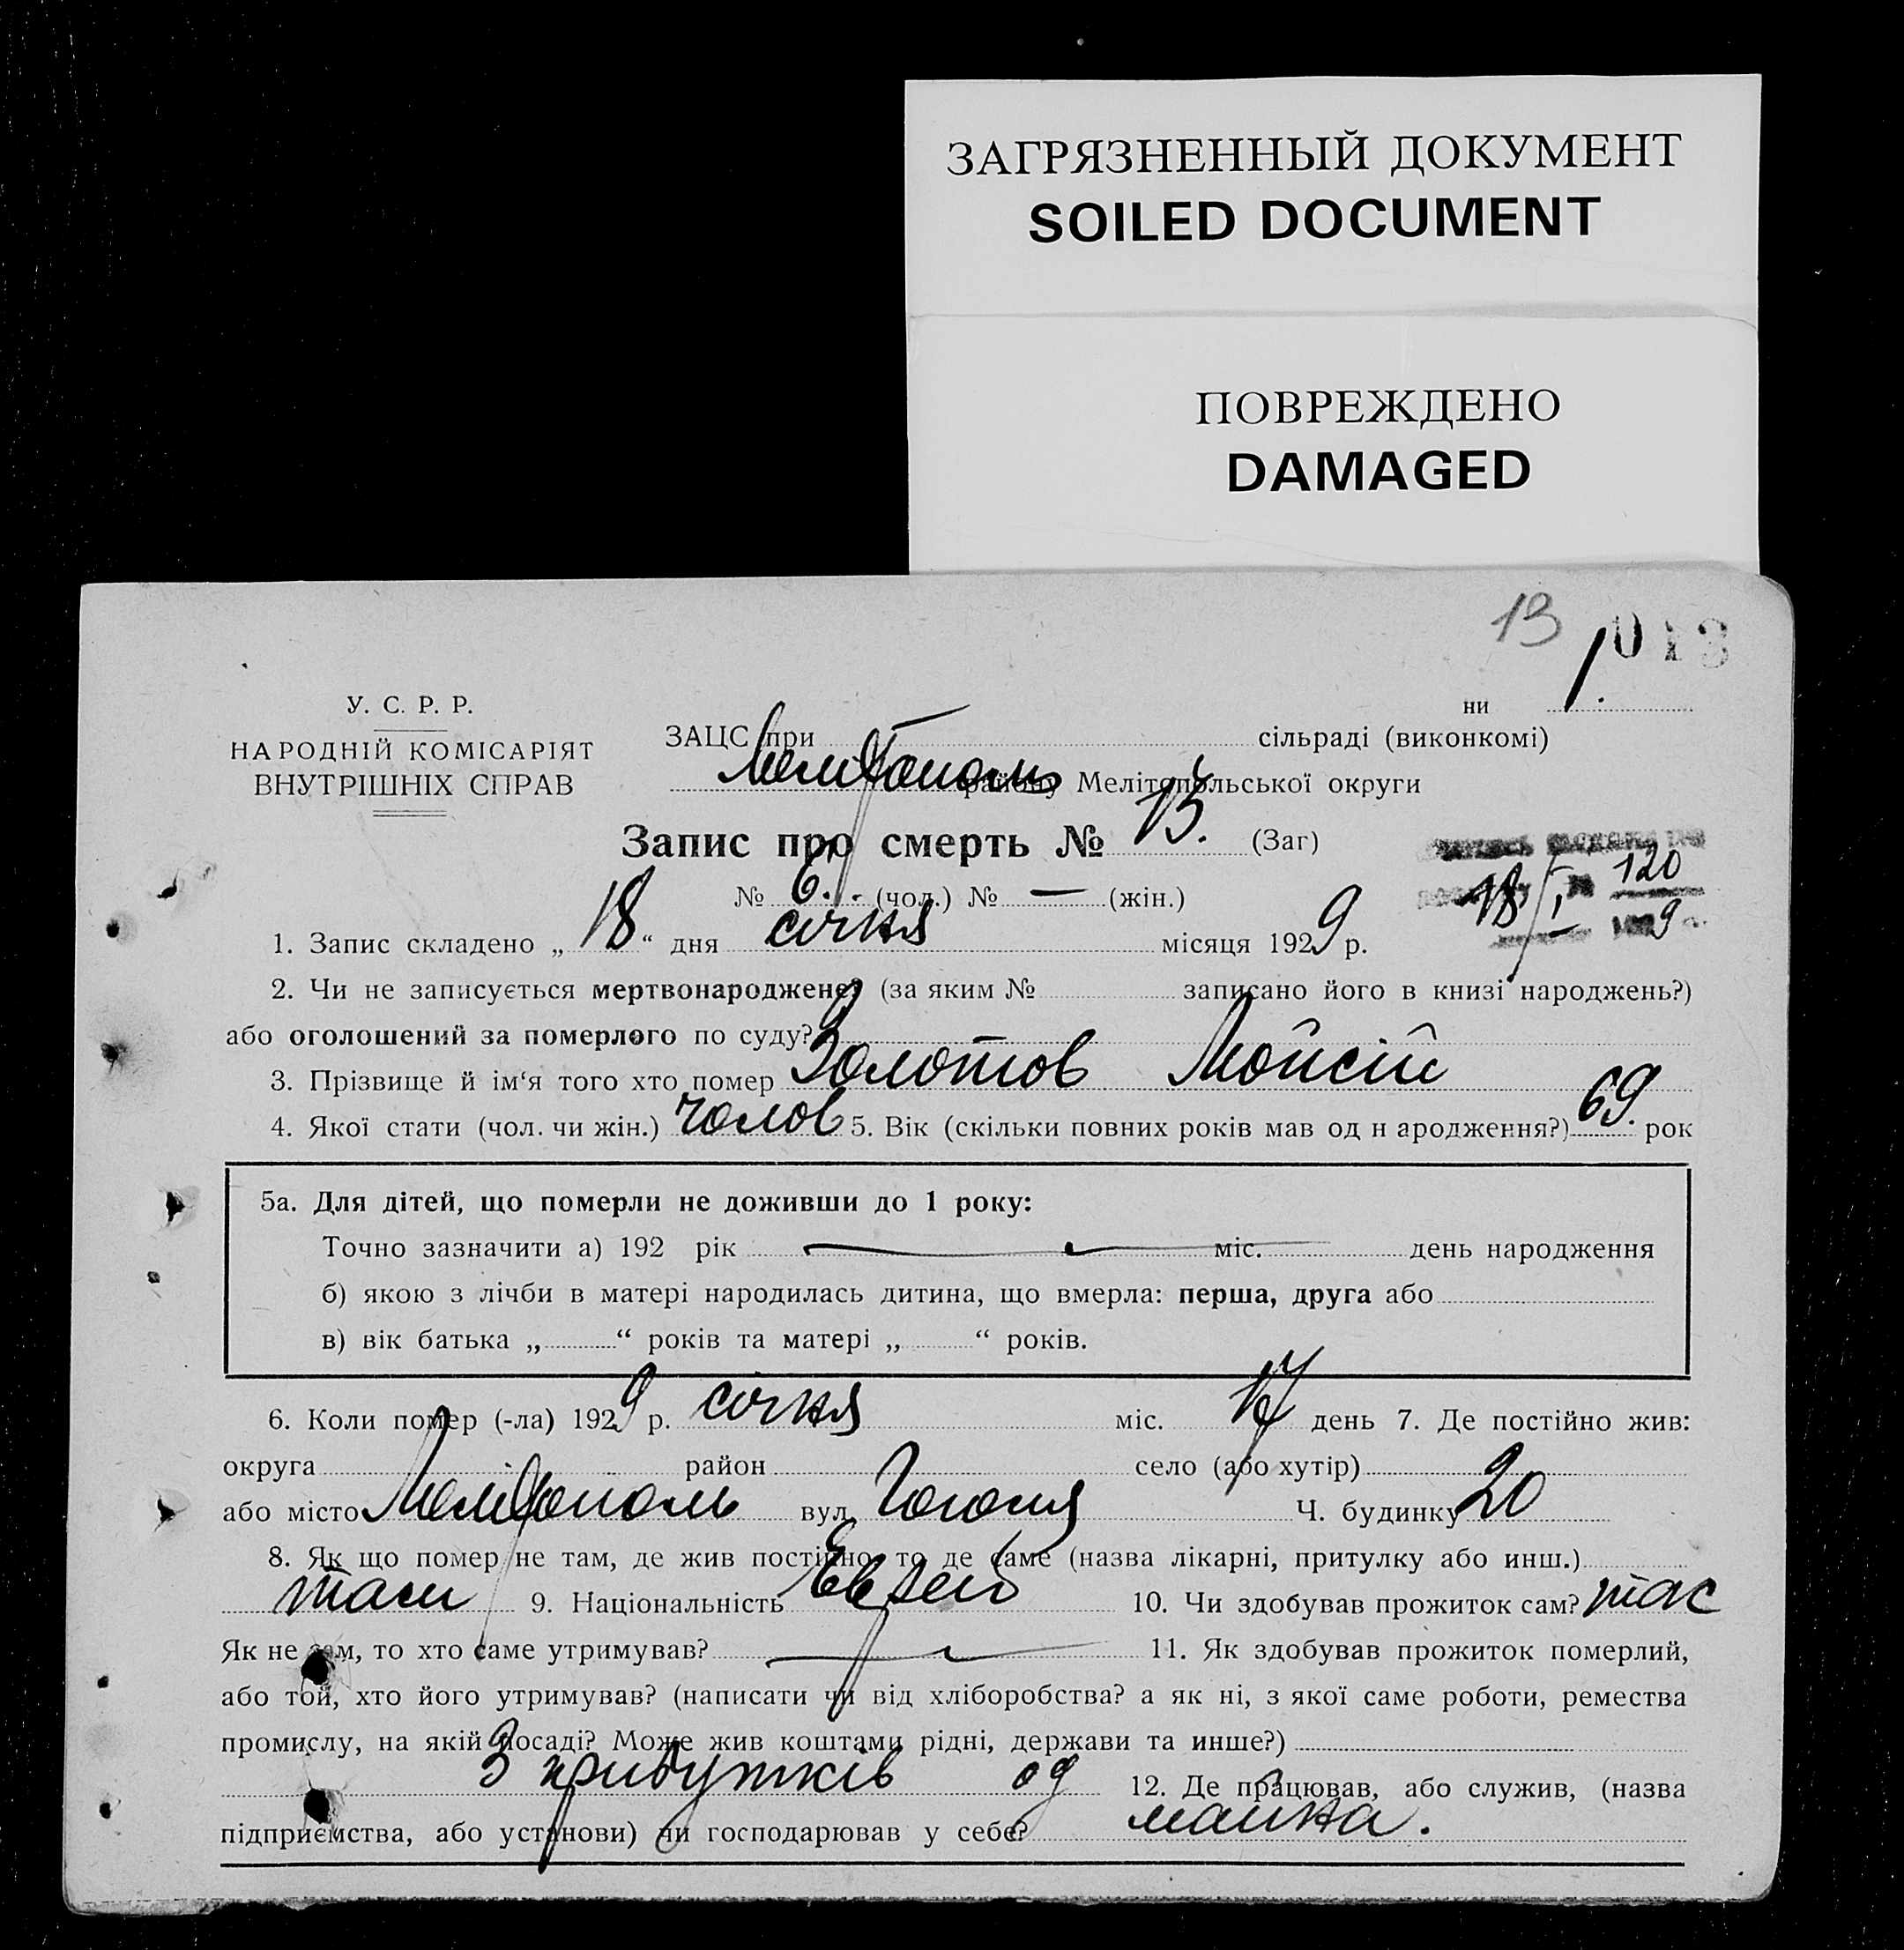 ЗАГРЯЗНЕННЫЙ ДОКУМЕНТ
SOILED DOCUMENT
ПОВРЕЖДЕНО
DAMAGED
13
013
1.
У. С. Р. Р.
НАРОДНІЙ КОМІСАРІЯТ
ВНУТРІШНІХ СПРАВ
ни
ЗАЦС при сільраді (виконкомі)
Мелітополь району Мелітопольської округи
Запис про смерть № 13. (Заг)
№ 6. (чол.) № — (жін.)
120
18/I 9
1. Запис складено „ 18 “ дня січня місяця 1929 р.
2. Чи не записується мертвонароджене? (за яким № записано його в книзі народжень?)
або оголошений за померлого по суду?
3. Прізвище й ім‘я того хто помер Золотов Мойсій
4. Якої стати (чол. чи жін.) чолов 5. Вік (скільки повних років мав од н ародження?) 69. рок
5а. Для дітей, що померли не доживши до 1 року:
Точно зазначити а) 192 рік міс. день народження
б) якою з лічби в матері народилась дитина, що вмерла: перша, друга або
в) вік батька „ “ років та матері „ “ років.
6. Коли помер (-ла) 1929 р. січня міс. 17 день 7. Де постійно жив:
округа район село (або хутір)
або місто Мелітополь вул. Гоголя Ч. будинку 20
8. Як що помер не там, де жив постійно, то де саме (назва лікарні, притулку або инш.)
там 9. Національність Еврей 10. Чи здобував прожиток сам? так
Як не сам, то хто саме утримував? — 11. Як здобував прожиток померлий,
або той, хто його утримував? (написати чи від хліборобства? а як ні, з якої саме роботи, ремества
промислу, на якій посаді? Може жив коштами рідні, держави та инше?)
З прибутків од 12. Де працював, або служив, (назва
підприємства, або установи) чи господарював у себе? майна.